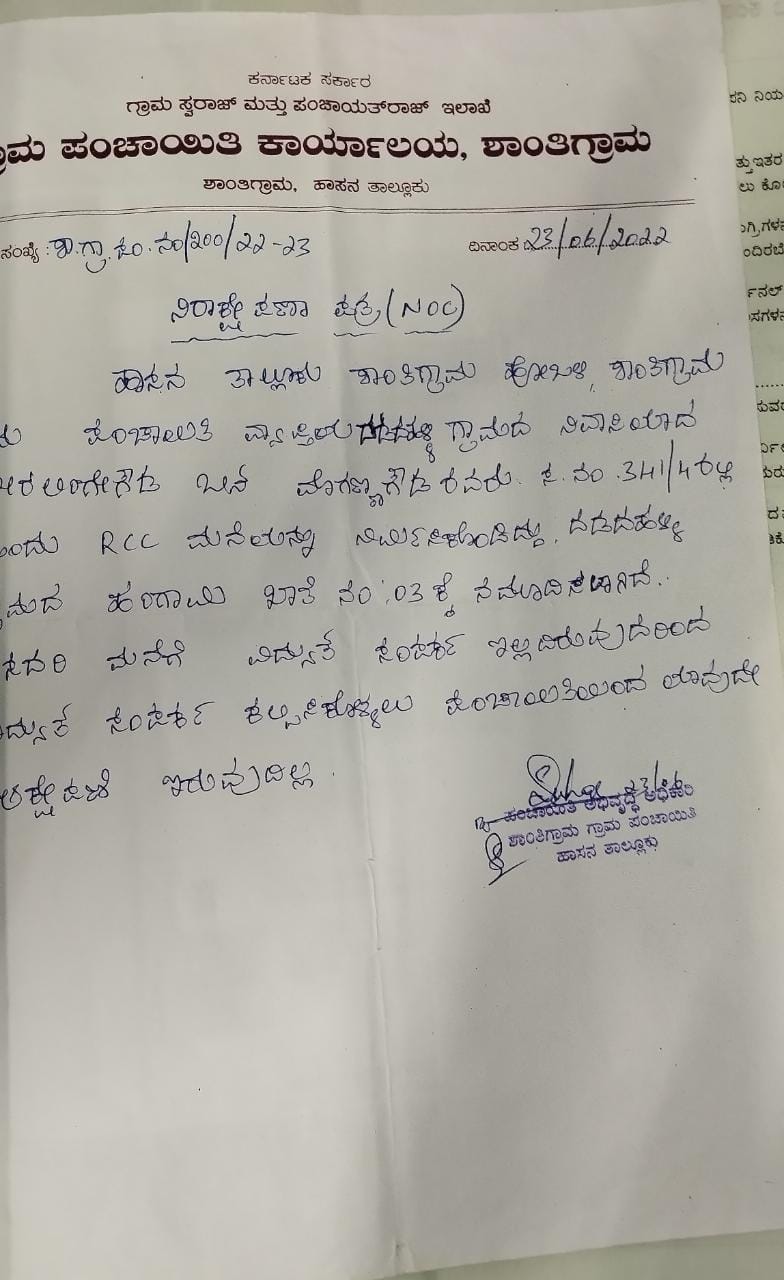 ಕರ್ನಾಟಕ ಸರ್ಕಾರ
ಗ್ರಾಮ ಸ್ವರಾಜ್ ಮತ್ತು ಪಂಚಾಯತ್‌ರಾಜ್ ಇಲಾಖೆ
ಾಮ ಪಂಚಾಯಿತಿ ಕಾರ್ಯಾಲಯ, ಶಾಂತಿಗ್ರಾಮ
ಶಾಂತಿಗ್ರಾಮ, ಹಾಸನ ತಾಲ್ಲೂಕು
ಸಂಖ್ಯೆ: ಶಾ.ಗ್ರಾ.ಪಂ.ನಂ/200/22-23 ದಿನಾಂಕ 23/06/2022
ನಿರಾಕ್ಷೇಪಣಾ ಪತ್ರ (NOC)
ಹಾಸನ ತಾಲ್ಲೂಕು ಶಾಂತಿಗ್ರಾಮ ಹೋಬಳಿ, ಶಾಂತಿಗ್ರಾಮ
ಪಂಚಾಯಿತಿ ವ್ಯಾಪ್ತಿಯ ಗ್ರಾಮದ ನಿವಾಸಿಯಾದ
ಲಿಂಗೇಗೌಡ ಬಿನ್ ಮೊಗಣ್ಣಗೌಡ ರವರು. ಸ.ನಂ.341/4ರಲ್ಲಿ
ಂದು RCC ಮನೆಯನ್ನು ನಿರ್ಮಿಸಿಕೊಂಡಿದ್ದು, ದಡದಹಳ್ಳಿ
ಮದ ಹಂಗಾಮಿ ಖಾತೆ ನಂ:03 ಕ್ಕೆ ನಮೂದಿಸಲಾಗಿದೆ.
ಸದರಿ ಮನೆಗೆ ವಿದ್ಯುತ್ ಸಂಪರ್ಕ ಇಲ್ಲದಿರುವುದರಿಂದ
ದ್ಯುತ್ ಸಂಪರ್ಕ ಕಲ್ಪಿಸಿಕೊಳ್ಳಲು ಪಂಚಾಯಿತಿಯಿಂದ ಯಾವುದೇ
ಆಕ್ಷೇಪಣೆ ಇರುವುದಿಲ್ಲ.
ಪಂಚಾಯಿತಿ ಅಭಿವೃದ್ಧಿ ಅಧಿಕಾರಿ
ಶಾಂತಿಗ್ರಾಮ ಗ್ರಾಮ ಪಂಚಾಯಿತಿ
ಹಾಸನ ತಾಲ್ಲೂಕು